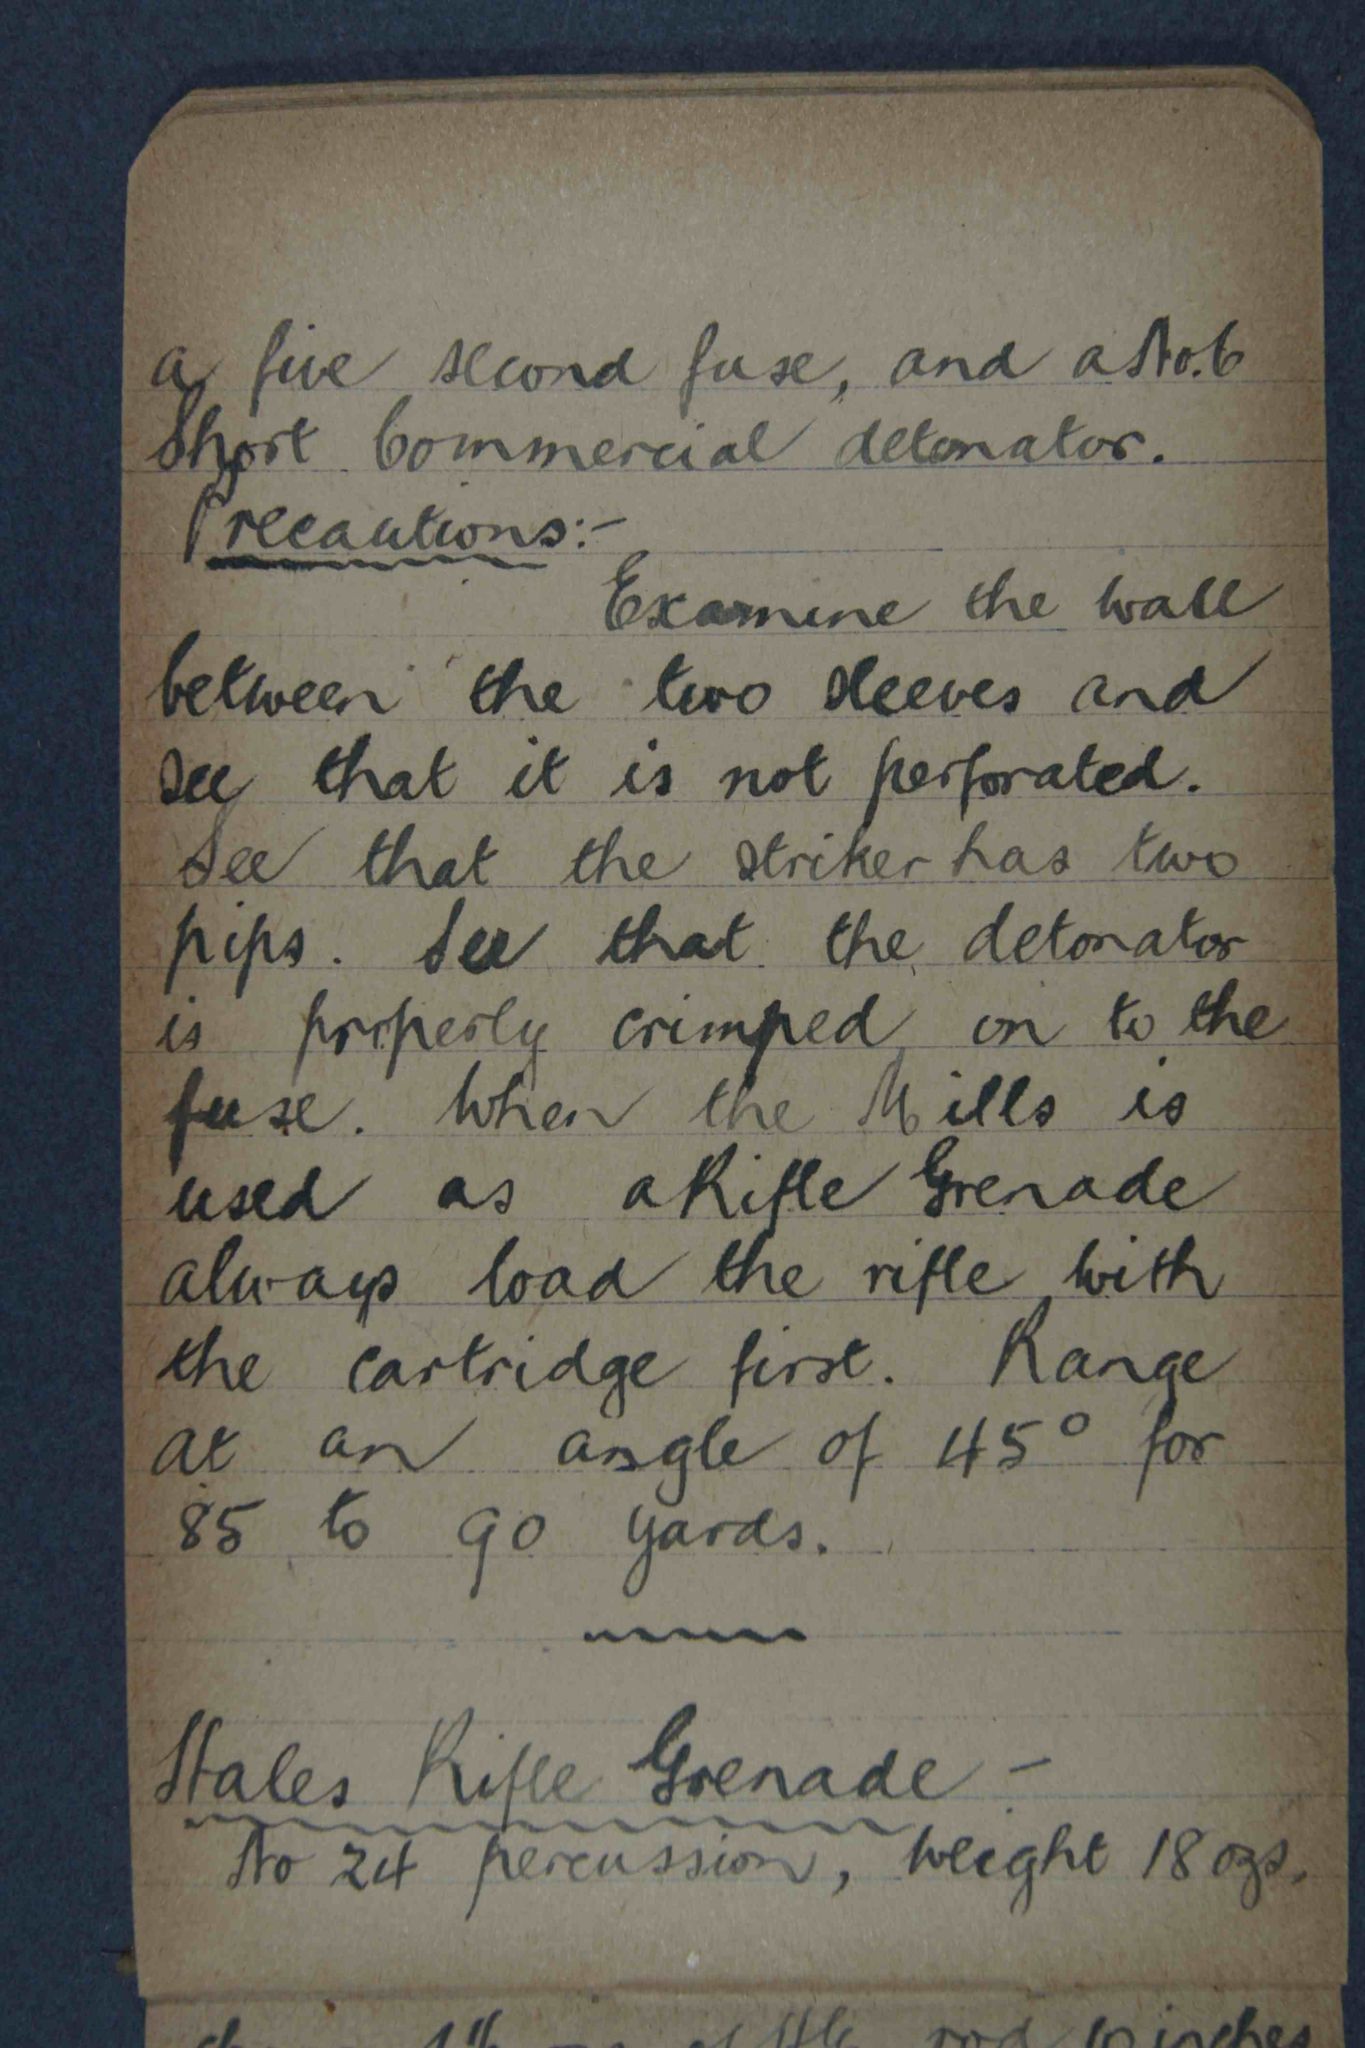 a five second fuse, and a No. 6
Short Commercial detonator.
Precautions:-
Examine the wall
between the two sleeves and
see that it is not perforated.
See that the striker has two
pips. See that the detonator
is properly crimped on to the
fuse. When the Mills is
used as a Rifle Grenade
always load the rifle with
the cartridge first. Range
at an angle of 45° for
85 to 90 yards.
Hales Rifle Grenade -
No 24 percussion, weight 18 ozs.
rod 10 inches